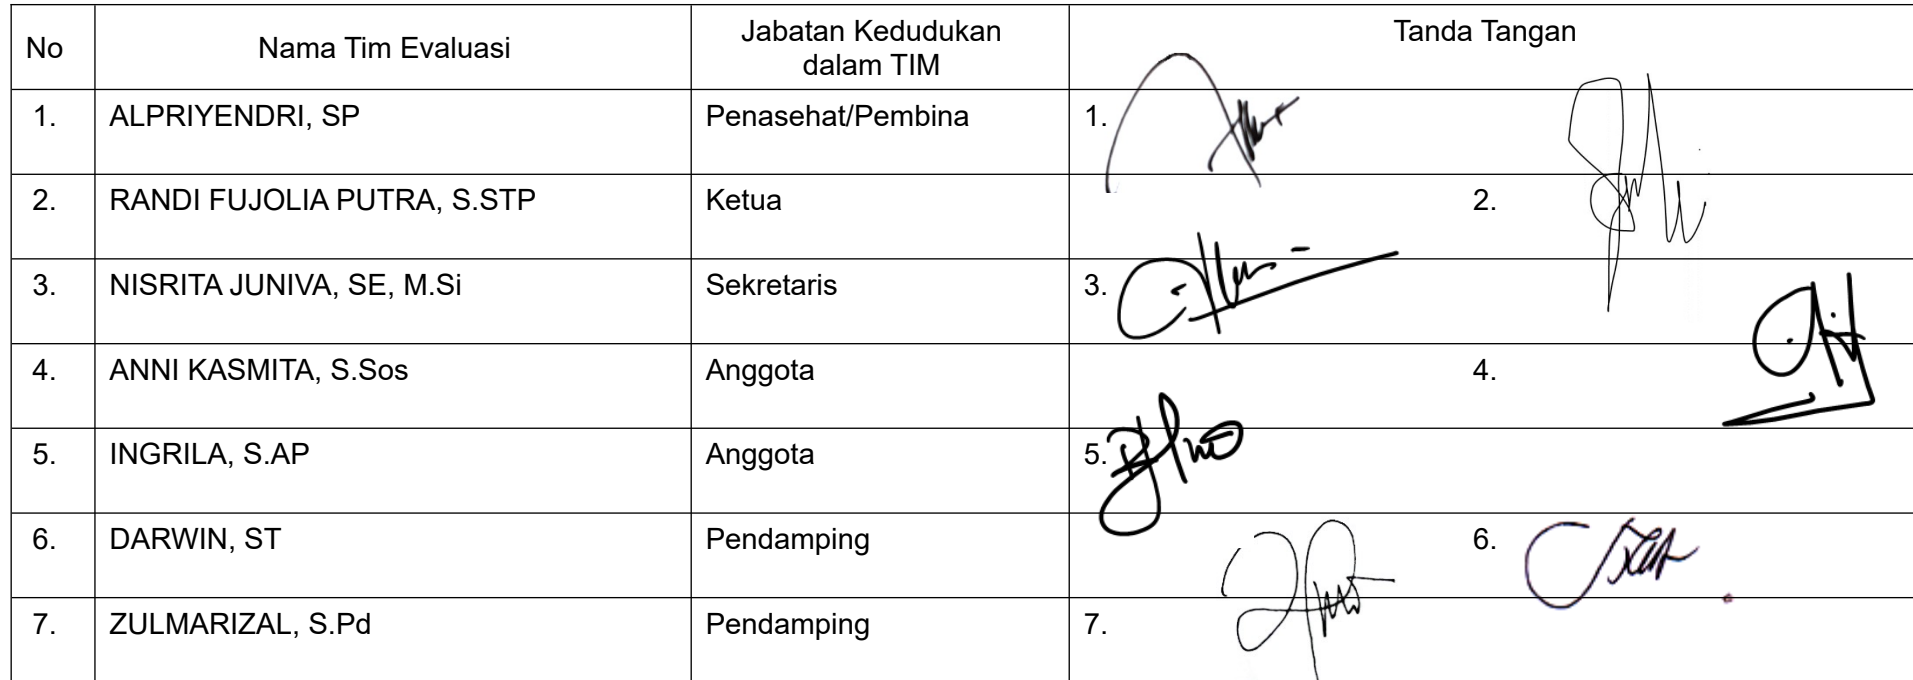 No
Nama Tim Evaluasi
Jabatan Kedudukan
dalam TIM
Tanda Tangan
1. ALPRIYENDRI, SP Penasehat/Pembina 1.
2. RANDI FUJOLIA PUTRA, S.STP Ketua 2.
3. NISRITA JUNIVA, SE, M.Si Sekretaris 3.
4. ANNI KASMITA, S.Sos Anggota 4.
5. INGRILA, S.AP Anggota 5.
6. DARWIN, ST Pendamping 6.
7. ZULMARIZAL, S.Pd Pendamping 7.